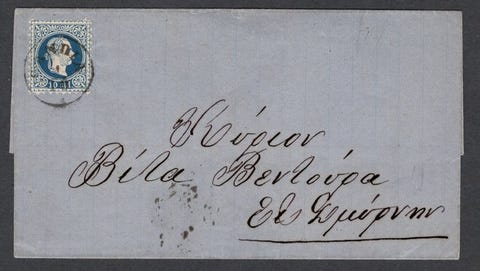 10 sld
Κύριον
Βίτα Βεντούρα
Εις Σμύρνην